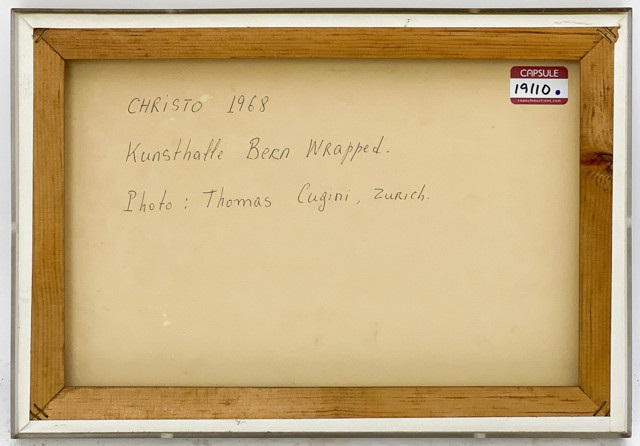 CHRISTO 1968
CAPSULE
19110.
Kunsthalle Bern Wrapped.
Photo : Thomas Cugini, Zurich.